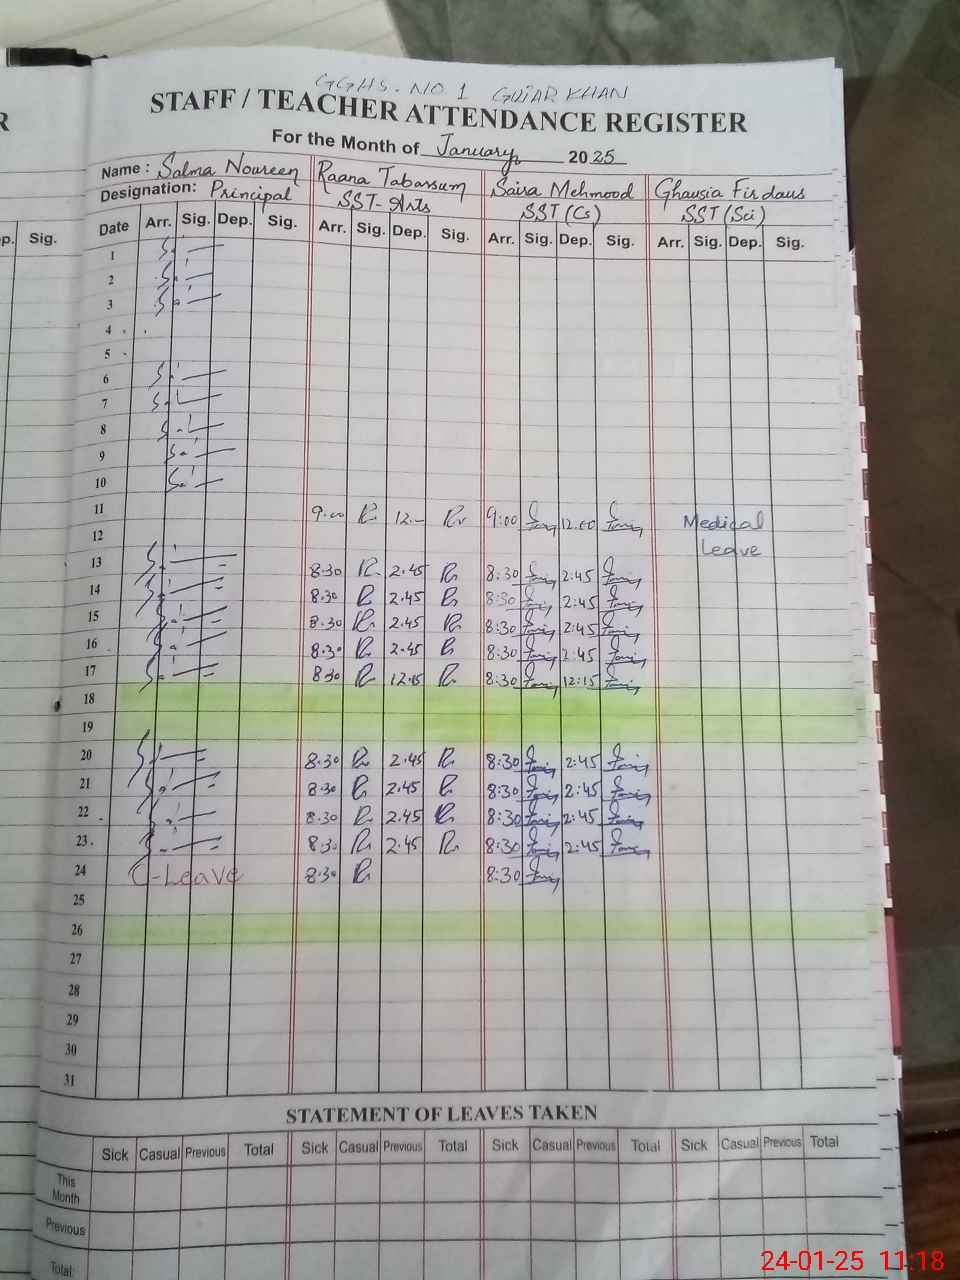 GGHS. NO 1 GUJAR KHAN
STAFF / TEACHER ATTENDANCE REGISTER
For the Month of January 2025
Name : Salma Noureen Raana Tabassum Saira Mehmood Ghausia Firdaus
Designation: Principal SST-Arts SST (Cs) SST (Sci)
Date Arr. Sig. Dep. Sig. Arr. Sig. Dep. Sig. Arr. Sig. Dep. Sig. Arr. Sig. Dep. Sig.
ep. Sig.
R
1
2
3
4
5
6
7
8
9
10
11 9.00 12.- 9:00 12.00 Medical
12 Leave
13 8.30 2.45 8:30 2:45
14 8.30 2.45 8:30 2:45
15 8.30 2.45 8:30 2:45
16 8.30 2.45 8:30 2:45
17 8.30 12.15 8:30 12:15
18
19
20 8.30 2.45 8:30 2:45
21 8.30 2.45 8:30 2:45
22 8.30 2.45 8:30 2:45
23 8.30 2.45 8:30 2:45
24 C-Leave 8.30 8:30
25
26
27
28
29
30
31
STATEMENT OF LEAVES TAKEN
Sick Casual Previous Total Sick Casual Previous Total Sick Casual Previous Total Sick Casual Previous Total
This
Month
Previous
Total:
24-01-25 11:18